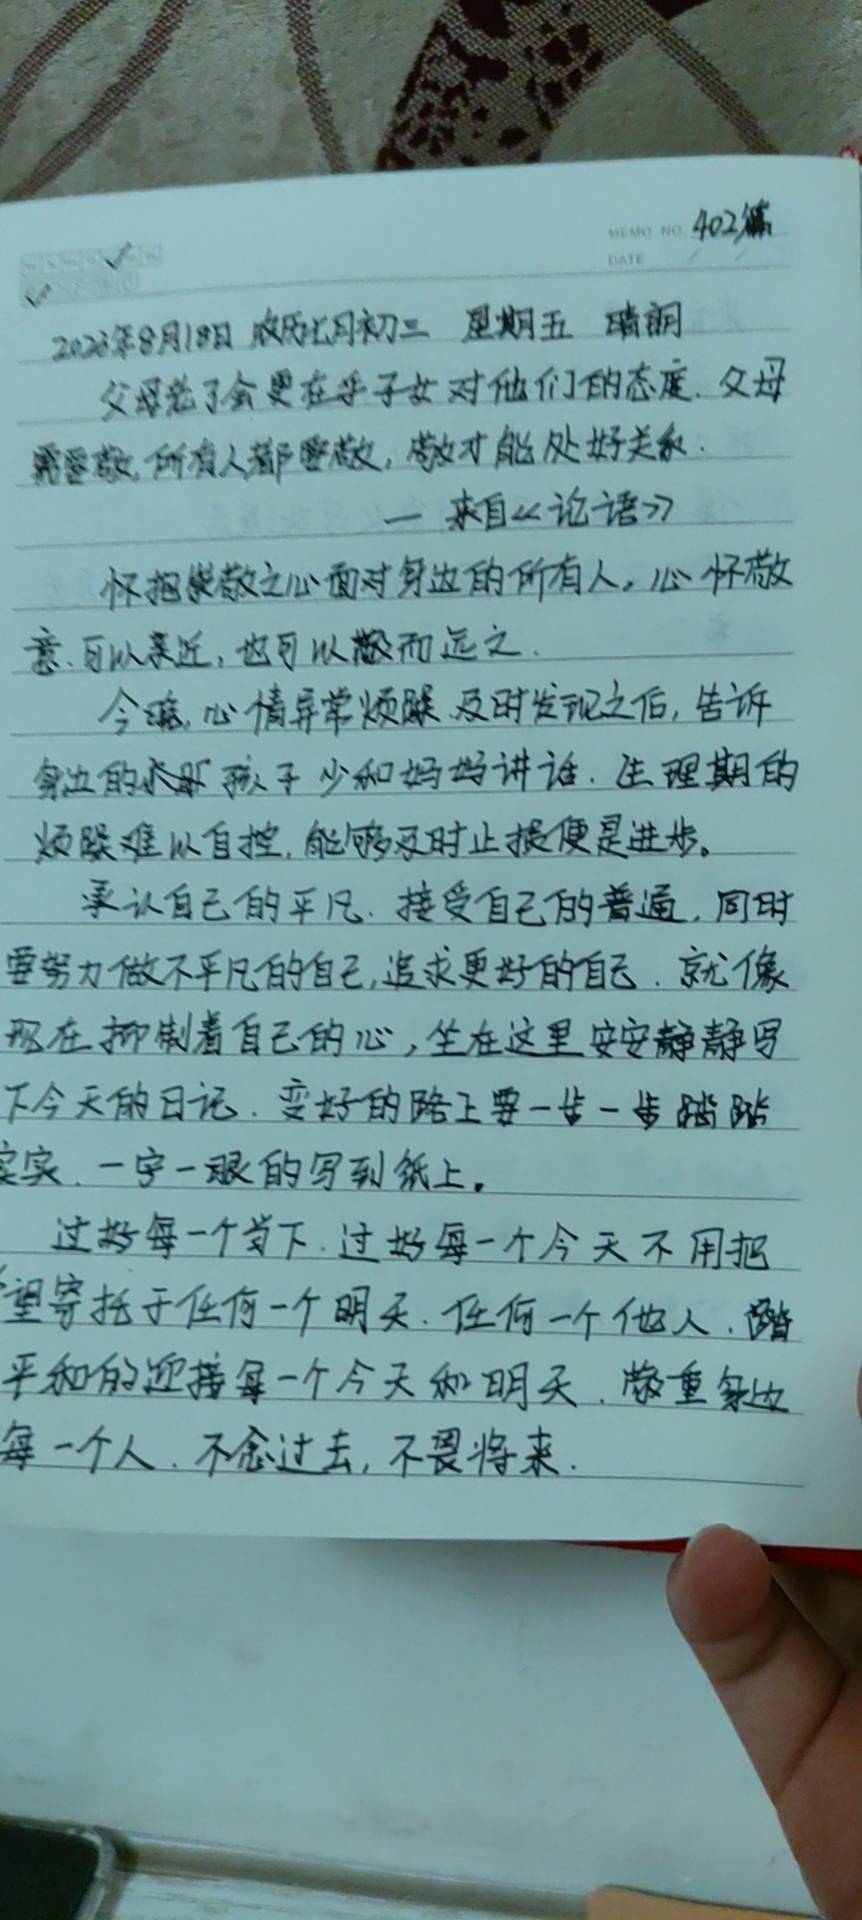 MEMO NO. 402篇
DATE / /
2023年8月18日 农历七月初三 星期五 晴朗
父母老了会更在乎子女对他们的态度.父母
需要敬,所有人都要敬,敬才能处好关系.
— 来自《论语》
怀抱崇敬之心面对身边的所有人。心怀敬
意.可以亲近,也可以敬而远之.
今晚,心情异常烦躁.及时发现之后,告诉
身边的 孩子少和妈妈讲话.生理期的
烦躁难以自控,能够及时止损便是进步。
承认自己的平凡.接受自己的普通,同时
要努力做不平凡的自己,追求更好的自己.就像
现在抑制着自己的心,坐在这里安安静静写
下今天的日记.变好的路上要一步一步踏踏
实实.一字一眼的写到纸上。
过好每一个当下.过好每一个今天不用把
希望寄托于任何一个明天.任何一个他人.
平和的迎接每一个今天和明天.敬重身边
每一个人.不念过去,不畏将来.